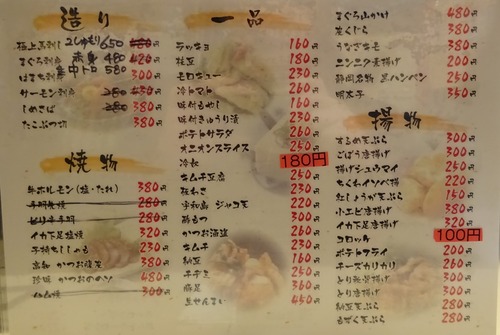 造り
極上馬刺し 2しゅもり 650
まぐろ刺身 赤身 480 420円
集中トロ 580
はまち刺身 300円
サーモン刺身 230円
しめさば 380 380円
たこぶつ切 380円
焼物
牛ホルモン(塩・たれ) 380円
280円
280円
イカ下足塩焼 320円
子持ちししゃも 230円
高知 かつお腹皮 380円
珍味 480円
300円
一品
ラッキョ 160円
枝豆 180円
モロキュー 230円
冷トマト 260円
味付もやし 160円
味付きゅうり漬 230円
ポテトサラダ 260円
オニオンスライス 250円
冷奴 180円
キムチ豆腐 250円
板わさ 230円
宇和島 ジャコ天 220円
酢もつ 300円
かつお酒盗 260円
キムチ 230円
納豆 160円
チヂミ 250円
豚足 360円
生せんまい 450円
まぐろ山かけ 480円
生くじら 380円
うなぎキモ 380円
ニンニク素揚げ 200円
静岡名物 黒ハンペン 250円
明太子 350円
揚物
するめ天ぷら 300円
ごぼう唐揚げ 300円
揚げシュウマイ 250円
ちくわイソベ揚 220円
たしょうが天ぷら 150円
小エビ唐揚げ 380円
イカ下足唐揚げ 320円
コロッケ 100円
ポテトフライ 200円
チーズカリカリ 260円
とり軟骨揚げ 300円
とり唐揚げ 300円
納豆天ぷら 280円
もずく天ぷら 280円